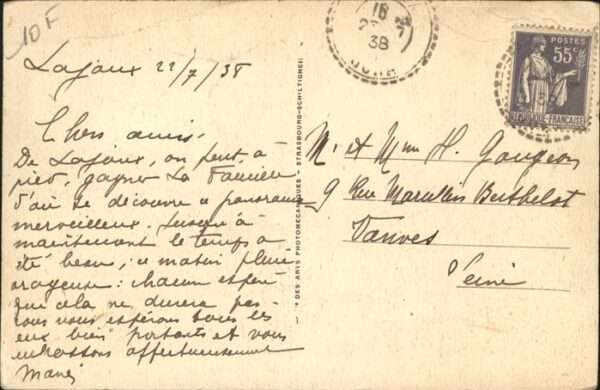 10 F
Lajoux 22/7/38
Chers amis.
De Lajoux, on peut, à
pied, gagner La Faucille
d'où se découvre ce panorama
merveilleux. Jusqu'à
maintenant le temps a
été beau, ce matin pluie
orageuse : chacun espère
que cela ne durera pas -
nous vous espérons tous les
deux bien portants et vous
embrassons affectueusement
M. et Mme H. Gougeon
9 Rue Marcellin Berthelot
Vanves
Seine
DES ARTS PHOTOMECANIQUES - STRASBOURG-SCHILTIGHEIM
16
22 - 7
38
JURA
POSTES
55c
REPUBLIQUE-FRANÇAISE